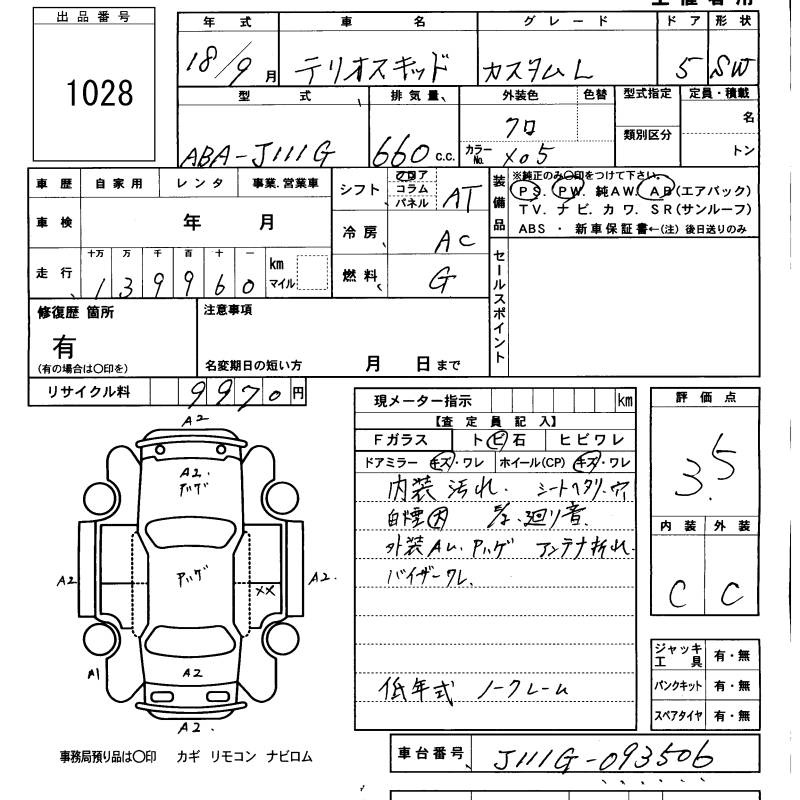 出品番号
1028
年式 車名 グレード ドア 形状
18/9月 テリオスキッド カスタムL 5 SW
型式 排気量 外装色 色替 型式指定 定員・積載
ABA-J111G 660c.c. クロ 類別区分 名
カラーNo. X05 トン
車歴 自家用 レンタ 事業.営業車
車検 年 月
走行 十万 万 千 百 十 一
1 3 9 9 6 0 km マイル
シフト フロア コラム パネル AT
冷房 AC
燃料 G
装備品 ※純正のみ〇印をつけて下さい。
PS. PW. 純AW. AB(エアバック)
TV. ナビ. カワ. SR(サンルーフ)
ABS ・ 新車保証書←(注) 後日送りのみ
セールスポイント
修復歴 箇所
有
(有の場合は〇印を)
注意事項
名変期日の短い方 月 日まで
リサイクル料 9970円
現メーター指示 km
【査定員記入】
Fガラス トビ石 ヒビワレ
ドアミラー キズ・ワレ ホイール(CP) キズ・ワレ
内装汚れ. シートヘタリ.穴
廻り音.
外装AU.Pハゲ アンテナ折れ.
バイザーワレ.
低年式 ノークレーム
評価点
3.5
内装 外装
C C
ジャッキ工具 有・無
パンクキット 有・無
スペアタイヤ 有・無
A2
A2.
A2
Pハゲ
A2.
XX
A1
A2
A2.
事務局預り品は〇印 カギ リモコン ナビロム
車台番号 J111G-093506